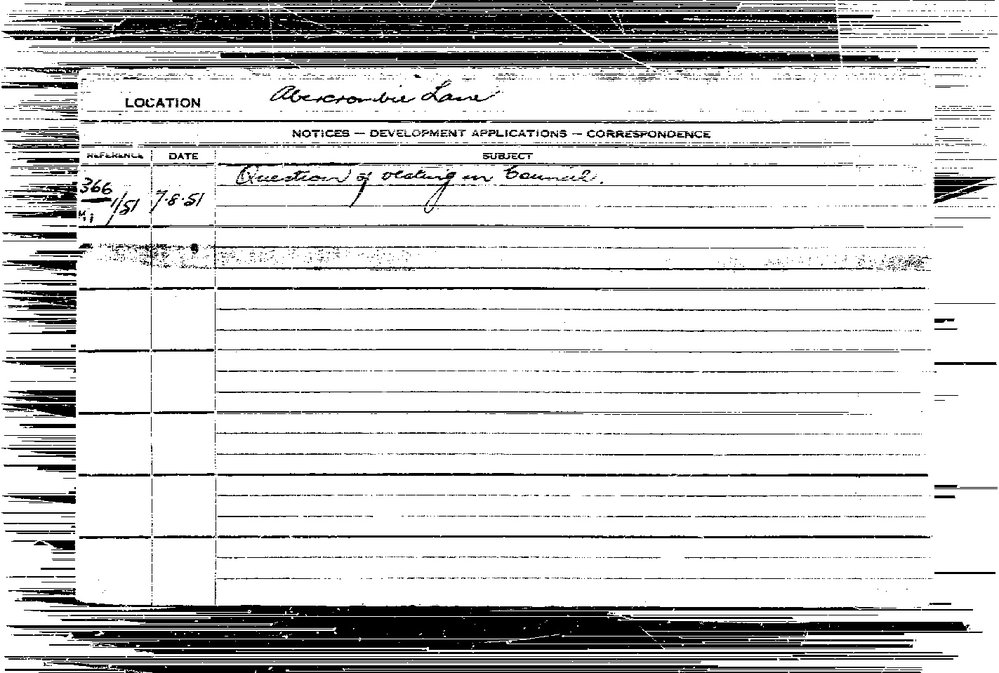 LOCATION Abercrombie Lane
NOTICES — DEVELOPMENT APPLICATIONS — CORRESPONDENCE
REFERENCE DATE SUBJECT
366 1/51 7.8.51 Question of vesting in Council.